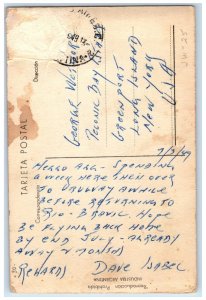 GEORGE WE
PECONIC BAY
GREENPORT
LONG ISLAND
NEW YORK
USA
JW-25
Dirección
TARJETA POSTAL
Correspondencia
7/3/59
HELLO ALL - SPENDING
A WEEK HERE THEN OVER
TO URUGUAY AWHILE
BEFORE RETURNING TO
RIO - BRAZIL. HOPE
BE FLYING BACK HOME
BY END JULY - ALREADY
AWAY 2 MONTHS
REGARDS DAVE ISABEL
Reproducción Prohibida
INDUSTRIA ARGENTINA